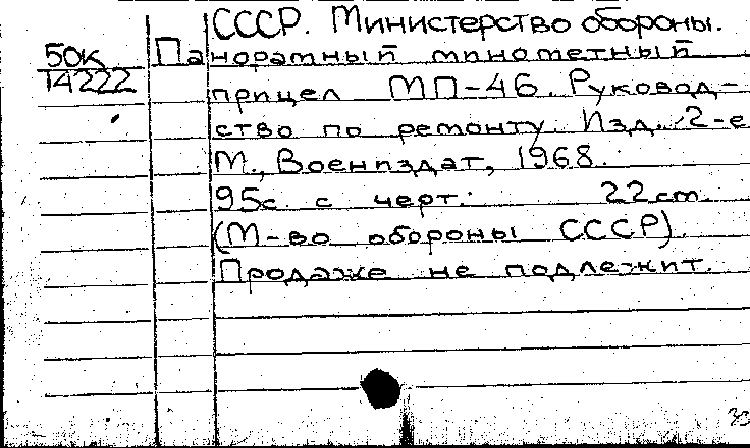 СССР. Министерство обороны.
50к
14222
Панорамный минометный
прицел МП-46. Руковод-
ство по ремонту. Изд. 2-е
М., Воениздат, 1968.
95с. с черт. 22 см.
(М-во обороны СССР).
Продаже не подлежит.